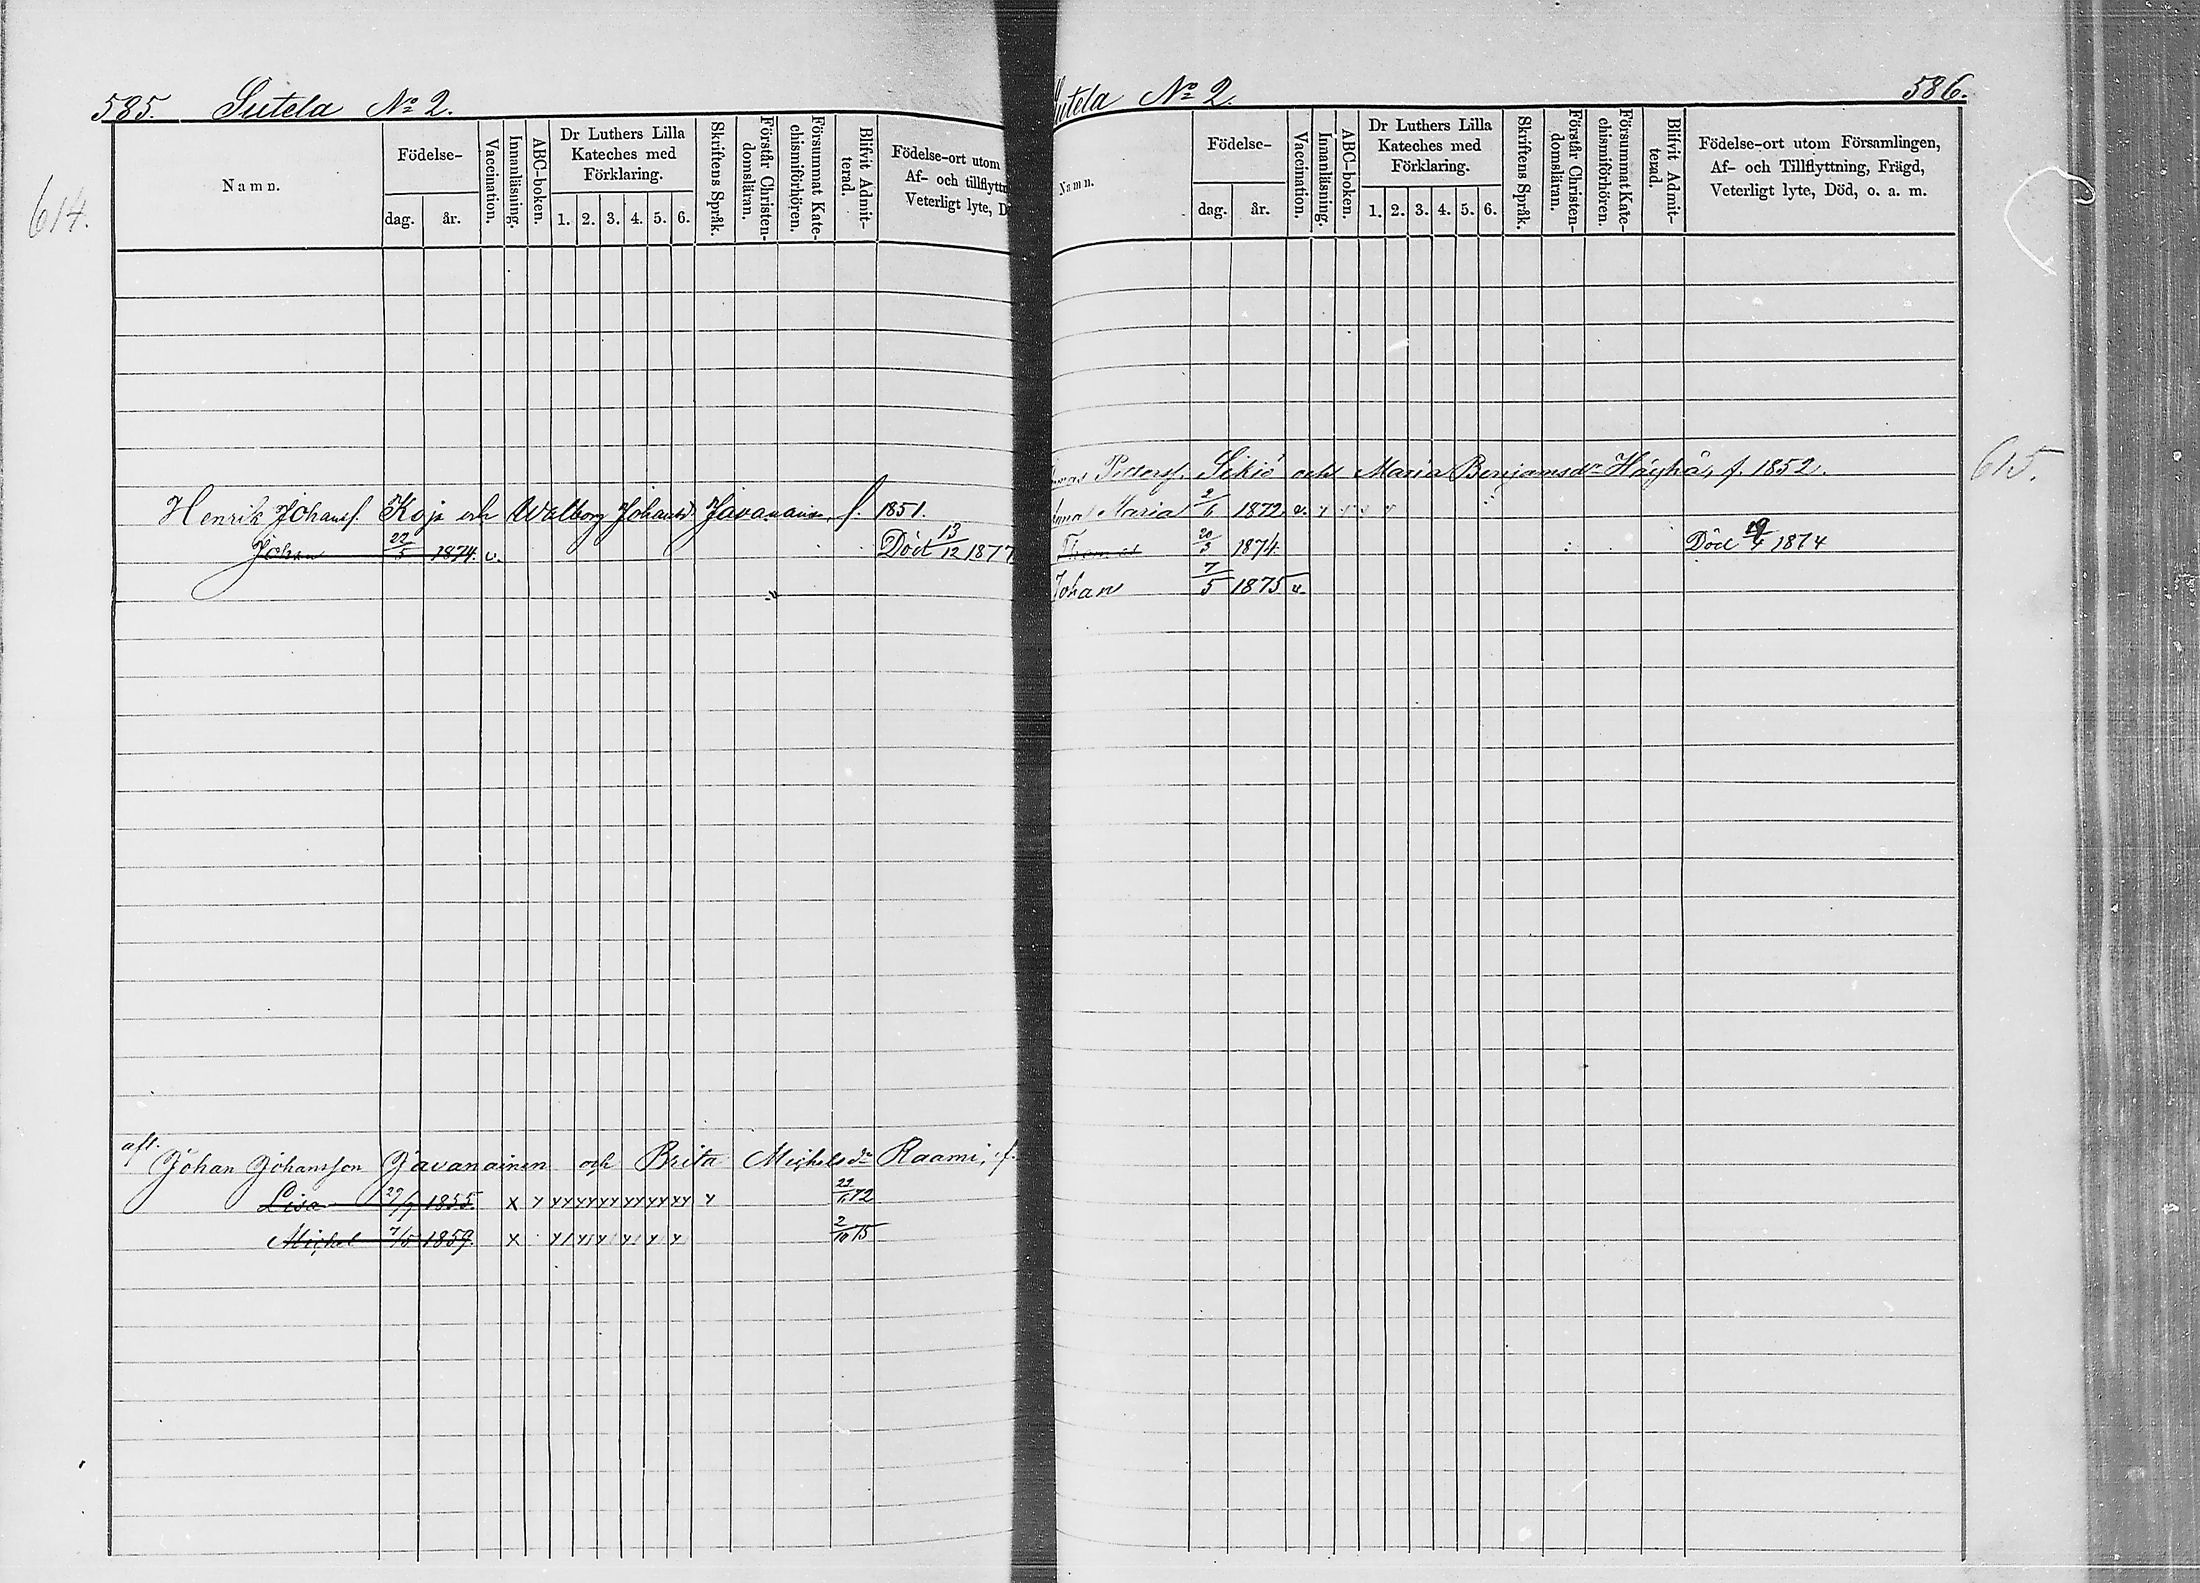 585. Sutela No 2.
614.
Namn.
Födelse-
dag.
år.
Vaccination.
Innanläsning.
ABC-boken.
Dr Luthers Lilla
Kateches med
Förklaring.
1. 2. 3. 4. 5. 6.
Skriftens Språk.
Förstår Christen-
domsläran.
Försummat Kate-
chismiförhören.
Blifvit Admit-
terad.
Födelse-ort utom
Af- och tillflyttn
Veterligt lyte, D
Henrik Johansf. Koja och Walborg Johansd. Javanain, f. 1851.
Johan 22/5 1874. v. Död 13/12 1877
afl. Johan Johansson Javanainen och Brita Michelsdr Raami, f.
Lisa 29/9 1855. x x xx xx xx xx xx xx x 72
Michel 7/5 1859. x x x x x x x 2/10 75
utela No 2. 586.
615.
Namn.
Födelse-
dag.
år.
Vaccination.
Innanläsning.
ABC-boken.
Dr Luthers Lilla
Kateches med
Förklaring.
1. 2. 3. 4. 5. 6.
Skriftens Språk.
Förstår Christen-
domsläran.
Försummat Kate-
chismiförhören.
Blifvit Admit-
terad.
Födelse-ort utom Församlingen,
Af- och Tillflyttning, Frägd,
Veterligt lyte, Död, o. a. m.
Pettersf. Sikiö och Maria Benjamsdr Häyhä, f. 1852.
nna Maria 2/6 1872 v.
Thomas 20/3 1874. Död 1874
Johan 7/5 1875 v.